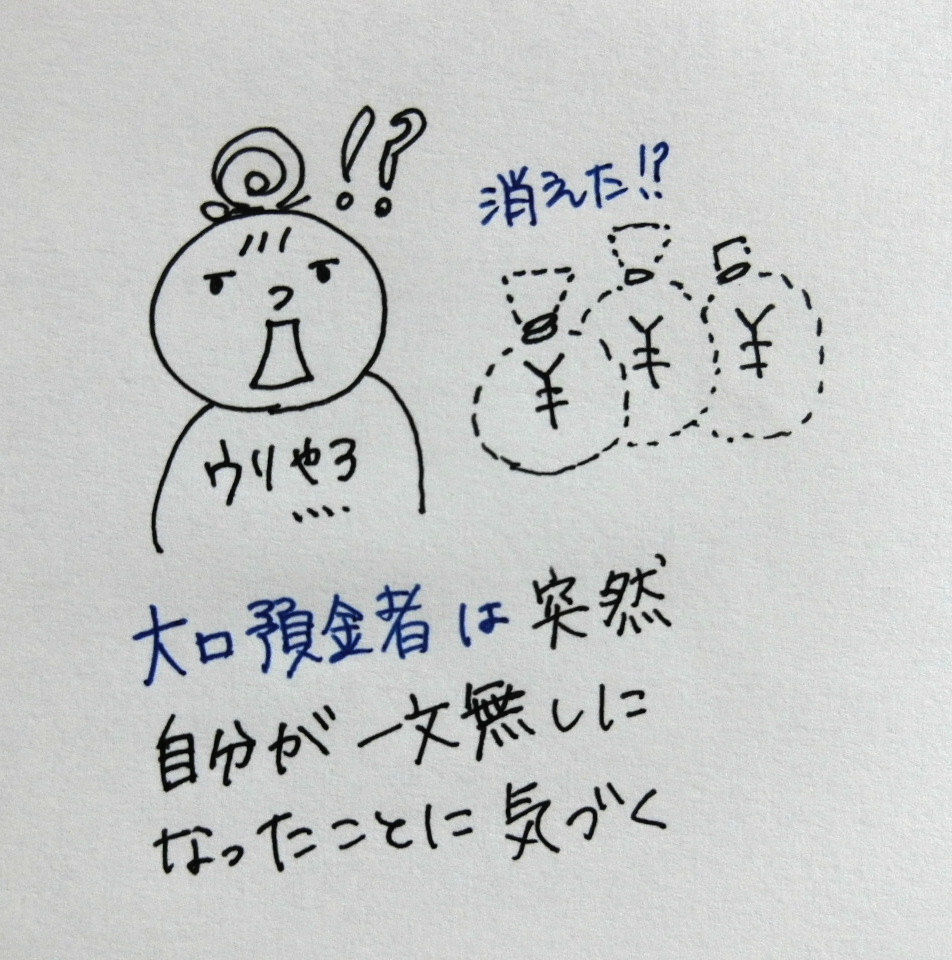 !?
消えた!?
¥ ¥ ¥
ウリやろ
....
大口預金者は突然
自分が一文無しに
なったことに気づく